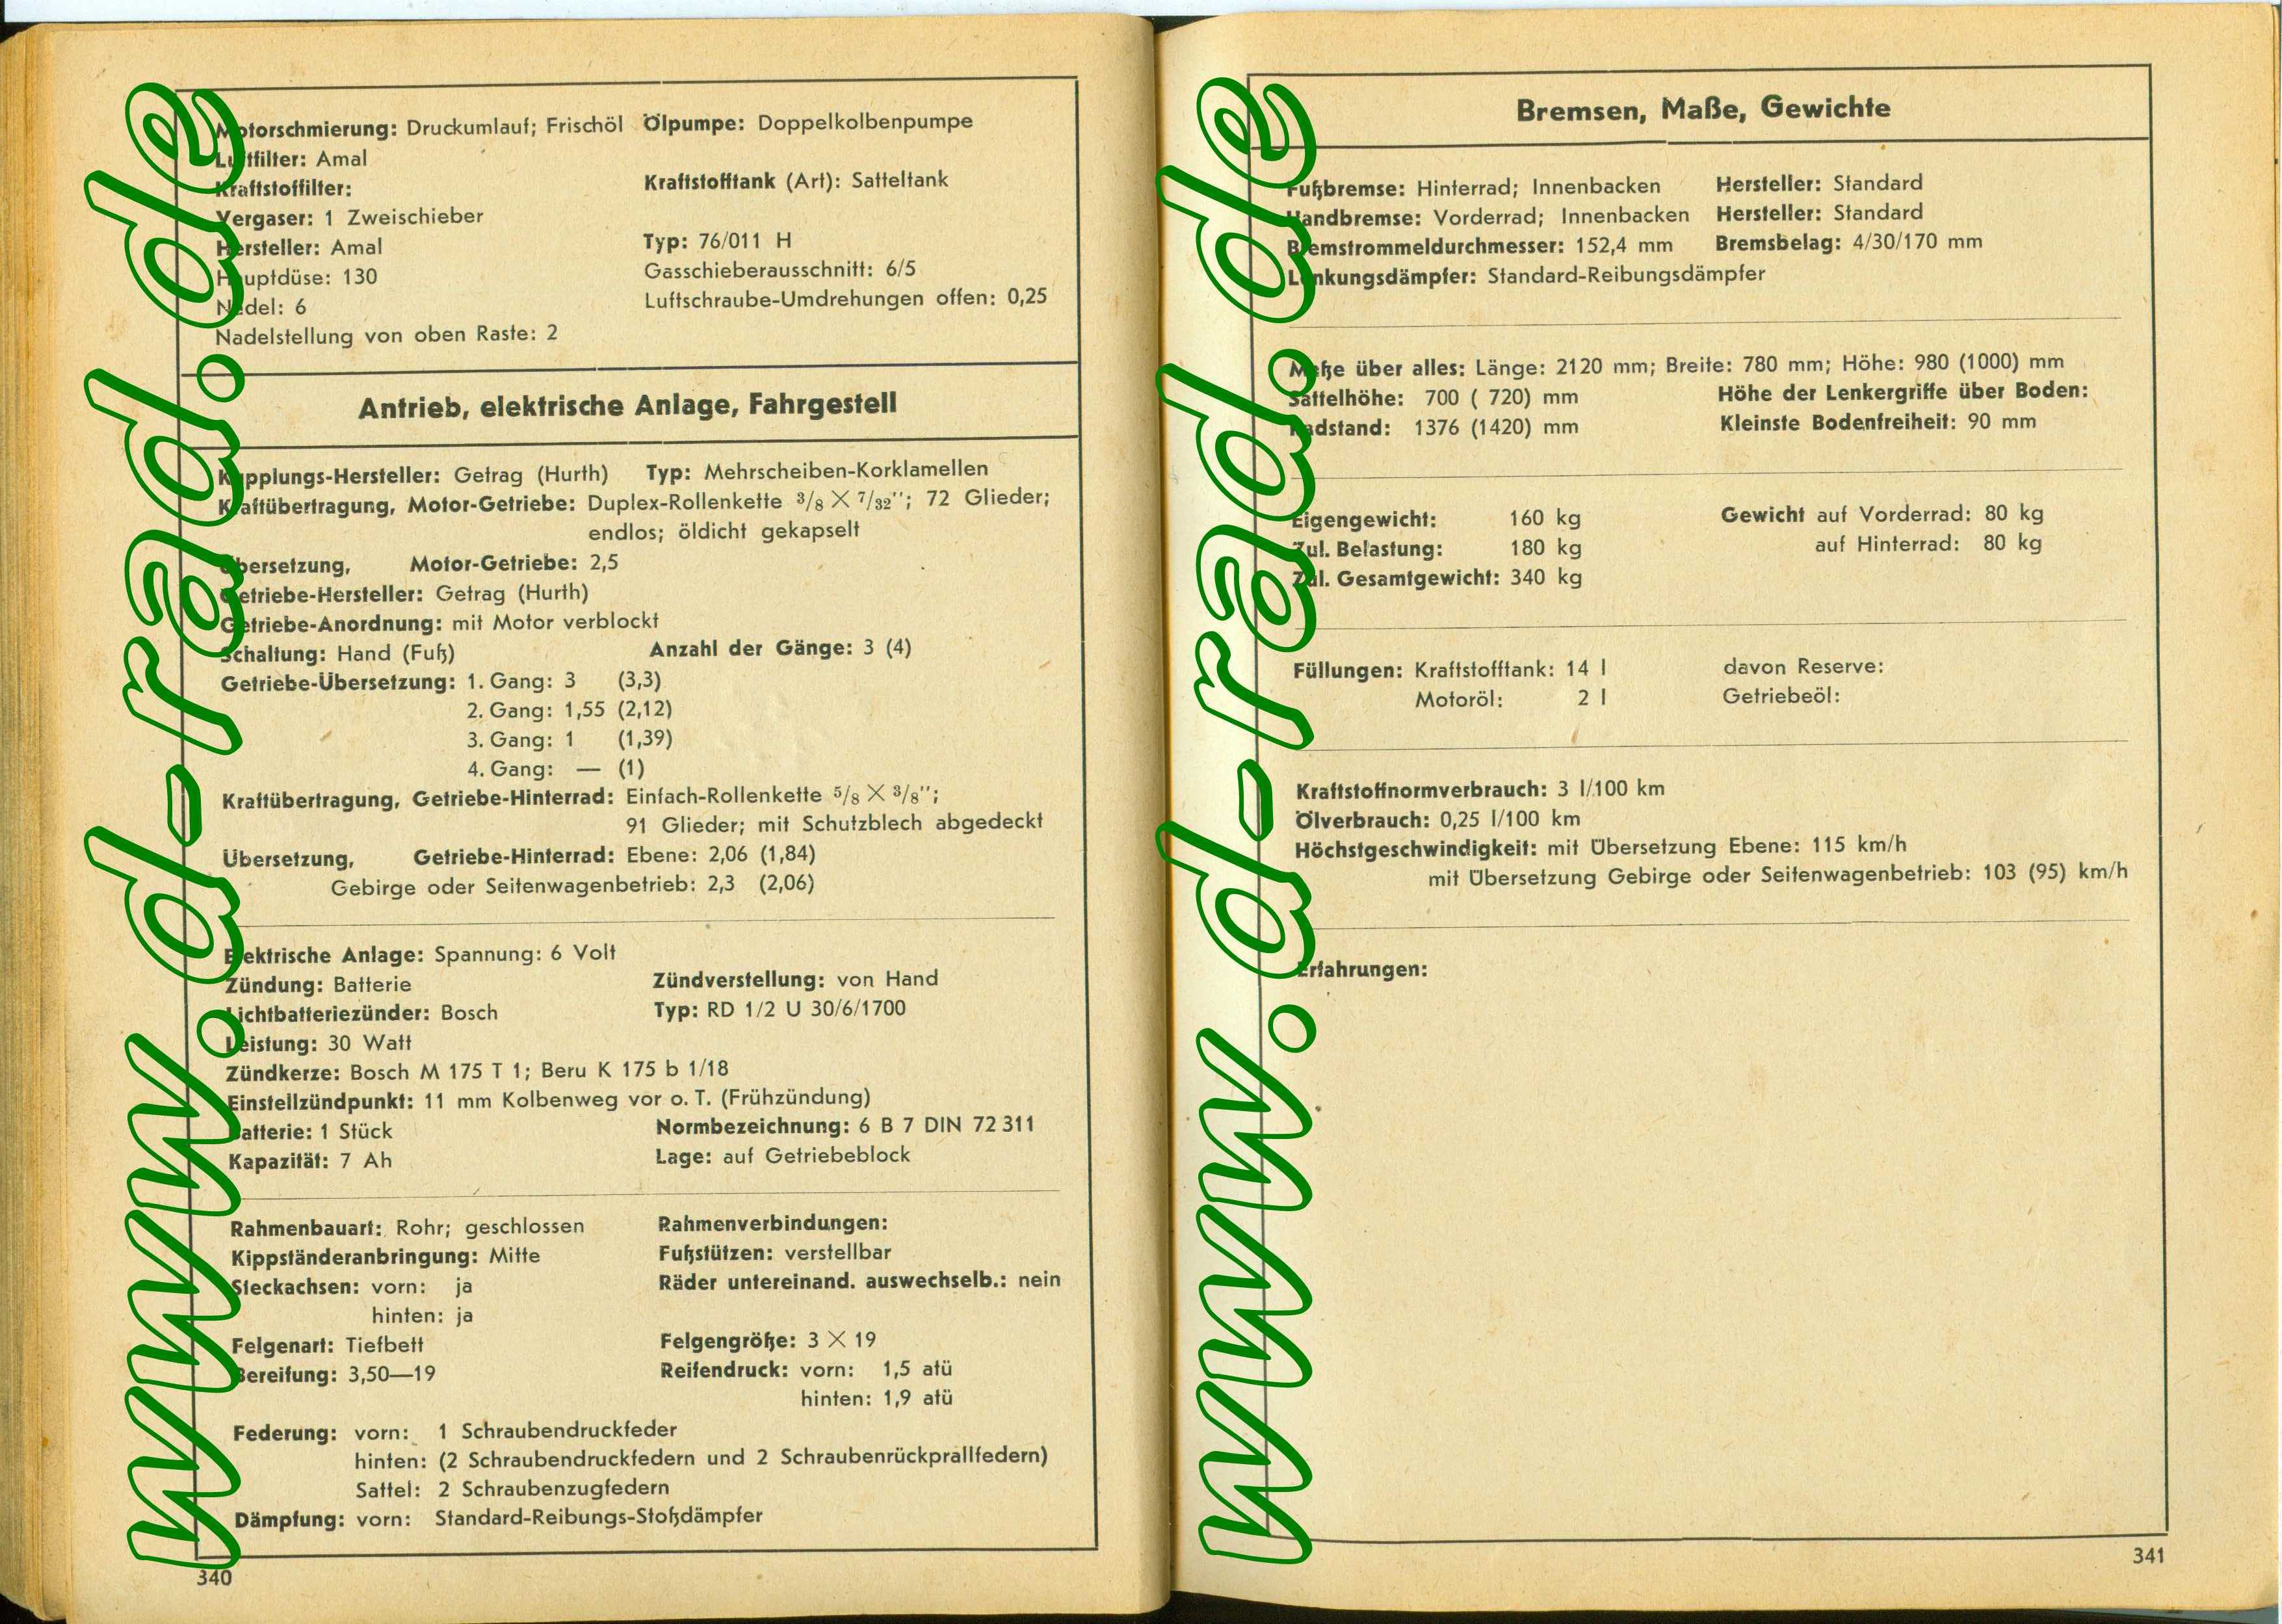 Motorschmierung: Druckumlauf; Frischöl Ölpumpe: Doppelkolbenpumpe
Luftfilter: Amal
Kraftstoffilter: Kraftstofftank (Art): Satteltank
Vergaser: 1 Zweischieber
Hersteller: Amal Typ: 76/011 H
Hauptdüse: 130 Gasschieberausschnitt: 6/5
Nadel: 6 Luftschraube-Umdrehungen offen: 0,25
Nadelstellung von oben Raste: 2
Antrieb, elektrische Anlage, Fahrgestell
Kupplungs-Hersteller: Getrag (Hurth) Typ: Mehrscheiben-Korklamellen
Kraftübertragung, Motor-Getriebe: Duplex-Rollenkette 3/8 X 7/32"; 72 Glieder;
endlos; öldicht gekapselt
Übersetzung, Motor-Getriebe: 2,5
Getriebe-Hersteller: Getrag (Hurth)
Getriebe-Anordnung: mit Motor verblockt
Schaltung: Hand (Fuß) Anzahl der Gänge: 3 (4)
Getriebe-Übersetzung: 1. Gang: 3 (3,3)
2. Gang: 1,55 (2,12)
3. Gang: 1 (1,39)
4. Gang: — (1)
Kraftübertragung, Getriebe-Hinterrad: Einfach-Rollenkette 5/8 X 3/8";
91 Glieder; mit Schutzblech abgedeckt
Übersetzung, Getriebe-Hinterrad: Ebene: 2,06 (1,84)
Gebirge oder Seitenwagenbetrieb: 2,3 (2,06)
Elektrische Anlage: Spannung: 6 Volt
Zündung: Batterie Zündverstellung: von Hand
Lichtbatteriezünder: Bosch Typ: RD 1/2 U 30/6/1700
Leistung: 30 Watt
Zündkerze: Bosch M 175 T 1; Beru K 175 b 1/18
Einstellzündpunkt: 11 mm Kolbenweg vor o. T. (Frühzündung)
Batterie: 1 Stück Normbezeichnung: 6 B 7 DIN 72 311
Kapazität: 7 Ah Lage: auf Getriebeblock
Rahmenbauart: Rohr; geschlossen Rahmenverbindungen:
Kippständeranbringung: Mitte Fußstützen: verstellbar
Steckachsen: vorn: ja Räder untereinand. auswechselb.: nein
hinten: ja
Felgenart: Tiefbett Felgengröße: 3 X 19
Bereifung: 3,50—19 Reifendruck: vorn: 1,5 atü
hinten: 1,9 atü
Federung: vorn: 1 Schraubendruckfeder
hinten: (2 Schraubendruckfedern und 2 Schraubenrückprallfedern)
Sattel: 2 Schraubenzugfedern
Dämpfung: vorn: Standard-Reibungs-Stoßdämpfer
340
www.d-rad.de
Bremsen, Maße, Gewichte
Fußbremse: Hinterrad; Innenbacken Hersteller: Standard
Handbremse: Vorderrad; Innenbacken Hersteller: Standard
Bremstrommeldurchmesser: 152,4 mm Bremsbelag: 4/30/170 mm
Lenkungsdämpfer: Standard-Reibungsdämpfer
Maße über alles: Länge: 2120 mm; Breite: 780 mm; Höhe: 980 (1000) mm
Sattelhöhe: 700 ( 720) mm Höhe der Lenkergriffe über Boden:
Radstand: 1376 (1420) mm Kleinste Bodenfreiheit: 90 mm
Eigengewicht: 160 kg Gewicht auf Vorderrad: 80 kg
Zul. Belastung: 180 kg auf Hinterrad: 80 kg
Zul. Gesamtgewicht: 340 kg
Füllungen: Kraftstofftank: 14 l davon Reserve:
Motoröl: 2 l Getriebeöl:
Kraftstoffnormverbrauch: 3 l/100 km
Ölverbrauch: 0,25 l/100 km
Höchstgeschwindigkeit: mit Übersetzung Ebene: 115 km/h
mit Übersetzung Gebirge oder Seitenwagenbetrieb: 103 (95) km/h
Erfahrungen:
341
www.d-rad.de